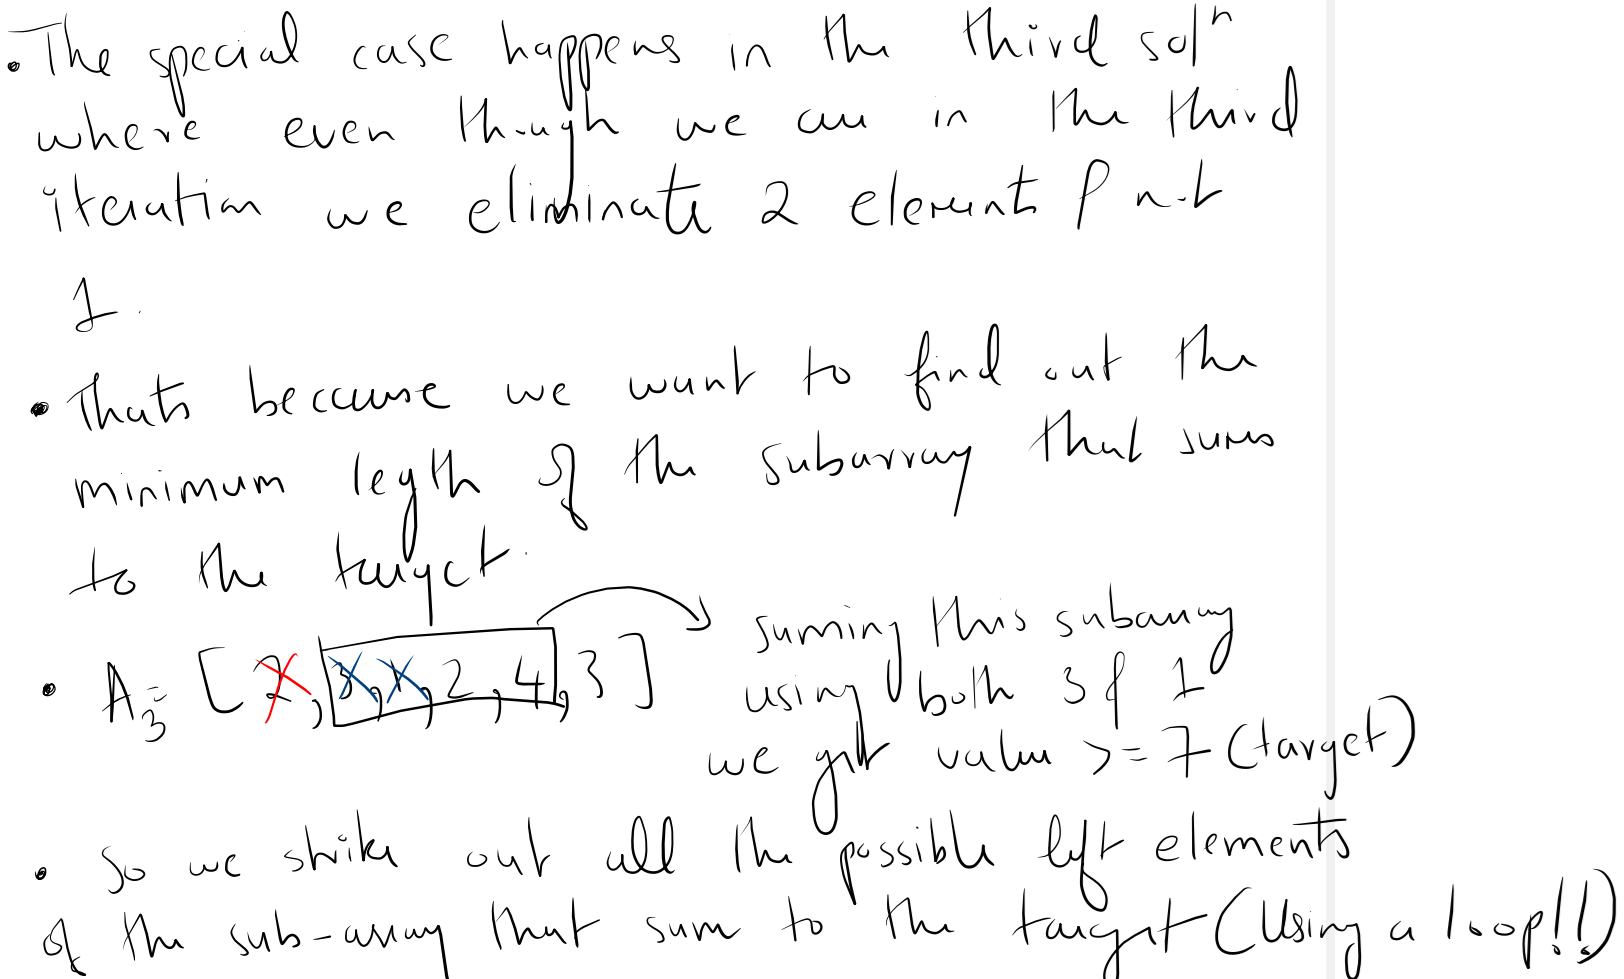 • The special case happens in the third solⁿ
where even though we are in the third
iteration we eliminate 2 elements & not
1.
• Thats because we want to find out the
minimum legth of the subarray that sums
to the target.
• A₃ = [2, 3, 1, 2, 4, 3]
suming this subarray
using both 3 & 1
we get value >= 7 (target)
• So we strike out all the possible left elements
of the sub-array that sum to the target (Using a loop!!)